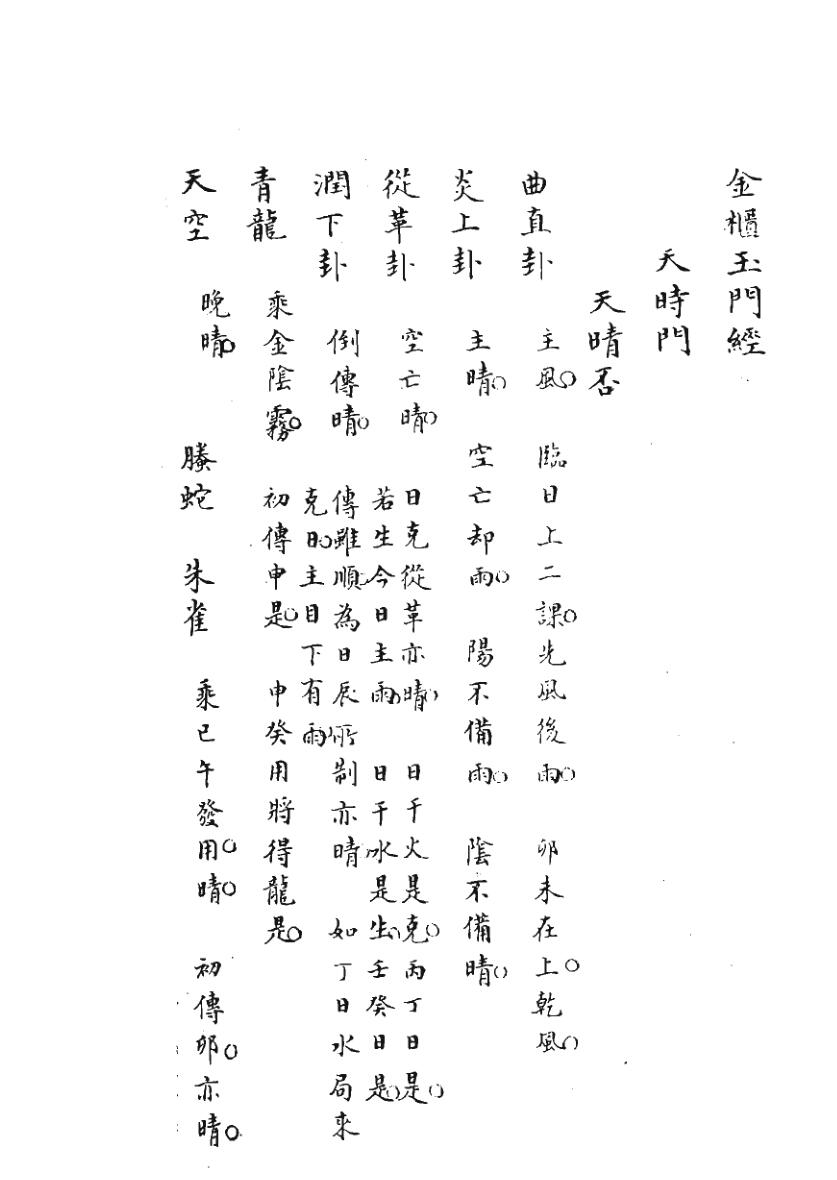 金櫃玉門經
天時門
天晴否
曲直卦 主風。 臨日上二課。先風後雨。 卯未在上。乾風。
炎上卦 主晴。 空亡却雨。 陽不備雨。 陰不備晴。
從革卦 空亡晴。 日克從革亦晴。 日干火是克。丙丁日是。
若生今日主雨。 日干水是生。壬癸日是。
潤下卦 倒傳晴。 傳雖順。為日辰所制亦晴。 如丁日水局來
克日。主目下有雨。
青龍 乘金陰霧。 初傳申是。 申癸用將得龍是。
天空 晚晴。 螣蛇 朱雀 乘巳午發用。晴。 初傳卯。亦晴。